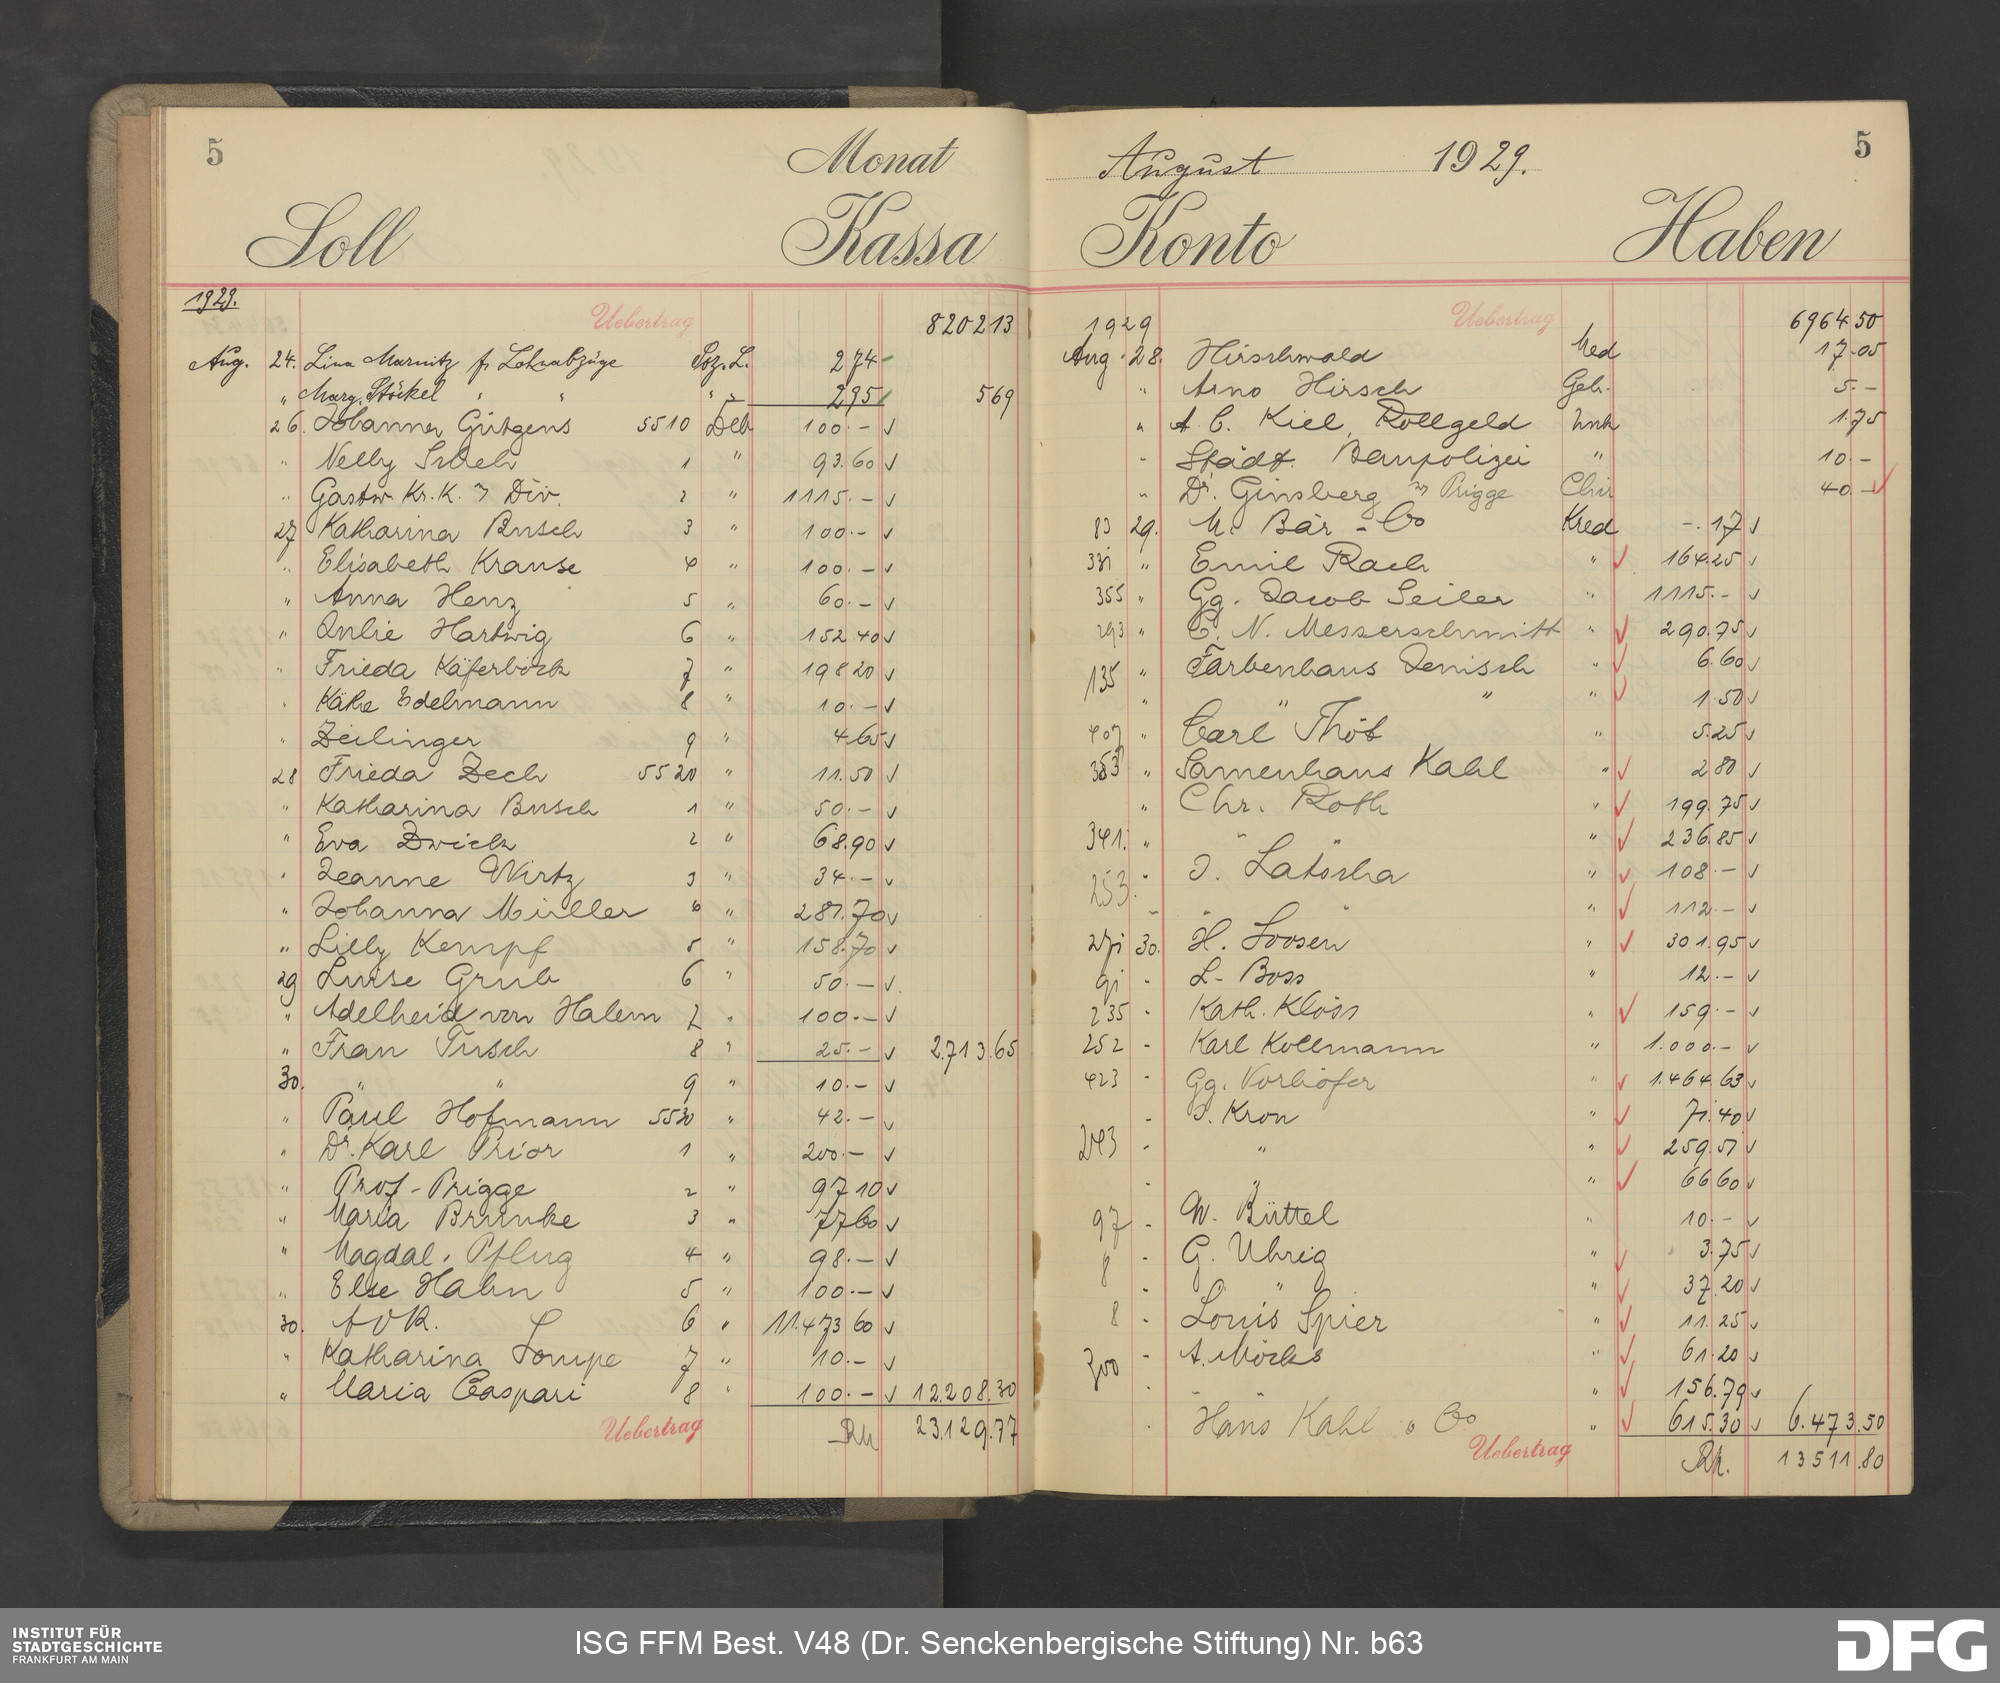 5
Monat
Soll Kassa
1929.
Uebertrag 8202 13
Aug. 24. Lina Marnitz f. Lohnabzüge Soz. L. 2 74
" Marg. Stöckel " " " " 2 95 5 69
26. Johanna Gütgens 5510 Deb 100.-
" Nelly 1 " 93.60
" Gastw. Kr. K. Div. 2 " 1115.-
27 Katharina Busch 3 " 100.-
" Elisabeth Krause 4 " 100.-
" Anna Henz 5 " 60.-
" Julie Hartwig 6 " 152 40
" Frieda Käferböck 7 " 198 20
" Käthe Edelmann 8 " 10.-
" Zeilinger 9 " 4 65
28 Frieda Zech 5520 " 11.50
" Katharina Busch 1 " 50.-
" Eva Zwick 2 " 68.90
" Jeanne Wirtz 3 " 34.-
" Johanna Müller 4 " 281.70
" Lilly Kempf 5 " 158.70
29 Luise Grub 6 " 50.-
" Adelheid von Halem 7 " 100.-
" Frau Tusch 8 " 25.- 2.713.65
30. " " 9 " 10.-
" Paul Hofmann 5530 " 42.-
" Dr. Karl Prior 1 " 200.-
" Prof. Prigge 2 " 97 10
" Maria Brunke 3 " 77 60
" Magdal. Pflug 4 " 98.-
" Else Hahn 5 " 100.-
30. AOK. 6 " 11.473 60
" Katharina Lompe 7 " 10.-
" Maria Caspari 8 " 100.- 12.208.30
Uebertrag RM 23.129.77
August 1929.
5
Konto Haben
1929 Uebertrag 6964 50
Aug. 28. Hirschwald Med 17.05
" Arno Hirsch Geb. 5.-
" A. C. Kiel, Rollgeld Unk 1.75
" Städt. Baupolizei " 10.-
" Dr. Ginsberg Prigge Chir 40.-
83 29. M. Bär - Co Kred -.17
331 " Emil Rach " 164.25
355 " Gg. Jacob Seiler " 1115.-
293 " C. N. Messerschmitt " 290.75
135 " Farbenhaus Jenisch " 6.60
" " " " 1.50
407 " Carl Thöt " 5.25
353 " Samenhaus Kahl " 2 80
" Chr. Roth " 199.75
341. " " " 236.85
253. " J. Latscha " 108.-
" " " " 112.-
271 30. H. Loosen " 301.95
91 " L. Boss " 12.-
235 " Kath. Klöss " 159.-
252 " Karl Kollmann " 1.000.-
423 " Gg. Vorhöfer " 1.464.63
" J. Kron " 71.40
243 " " " 259.51
" " " 66 60
97 " W. Büttel " 10.-
8 " G. Uhrig " 3.75
" " " 37.20
8 " Louis Spier " 11.25
300 " A. Möcks " 61.20
" " 156.79
" Hans Kahl & Co " 615.30 6.473.50
Uebertrag RM. 13511.80
INSTITUT FÜR
STADTGESCHICHTE
FRANKFURT AM MAIN
ISG FFM Best. V48 (Dr. Senckenbergische Stiftung) Nr. b63
DFG